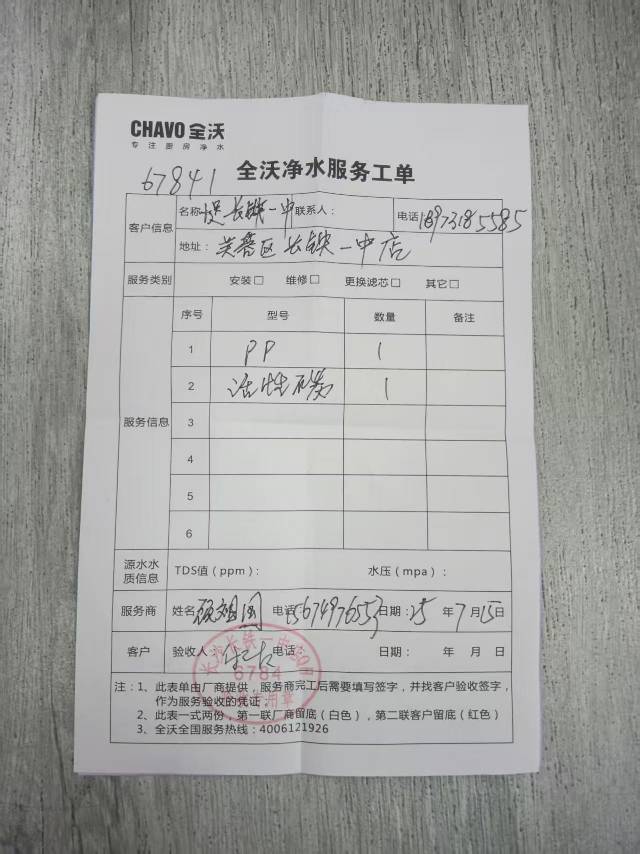 CHAVO 全沃
专注厨房净水
全沃净水服务工单
67841
客户信息
名称 长铁一中 联系人： 电话 18973185585
地址： 芙蓉区长铁一中店
服务类别 安装□ 维修□ 更换滤芯□ 其它□
服务信息
序号 型号 数量 备注
1 PP 1
2 活性碳 1
3
4
5
6
源水水质信息 TDS值（ppm）： 水压（mpa）：
服务商 姓名 电话 15674976553 日期：25 年 7 月 15 日
客户 验收人： 电话： 日期： 年 月 日
6784
注：1、此表单由厂商提供，服务商完工后需要填写签字，并找客户验收签字，
作为服务验收的凭证，
2、此表一式两份，第一联厂商留底（白色），第二联客户留底（红色）
3、全沃全国服务热线：4006121926